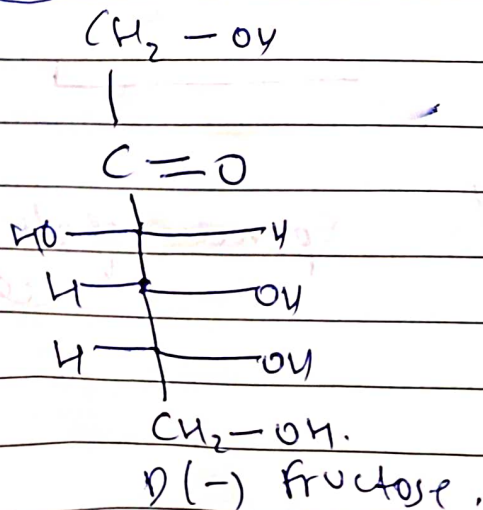 CH₂ — OH
C = O
HO H
H OH
H OH
CH₂ — OH.
D (-) fructose.